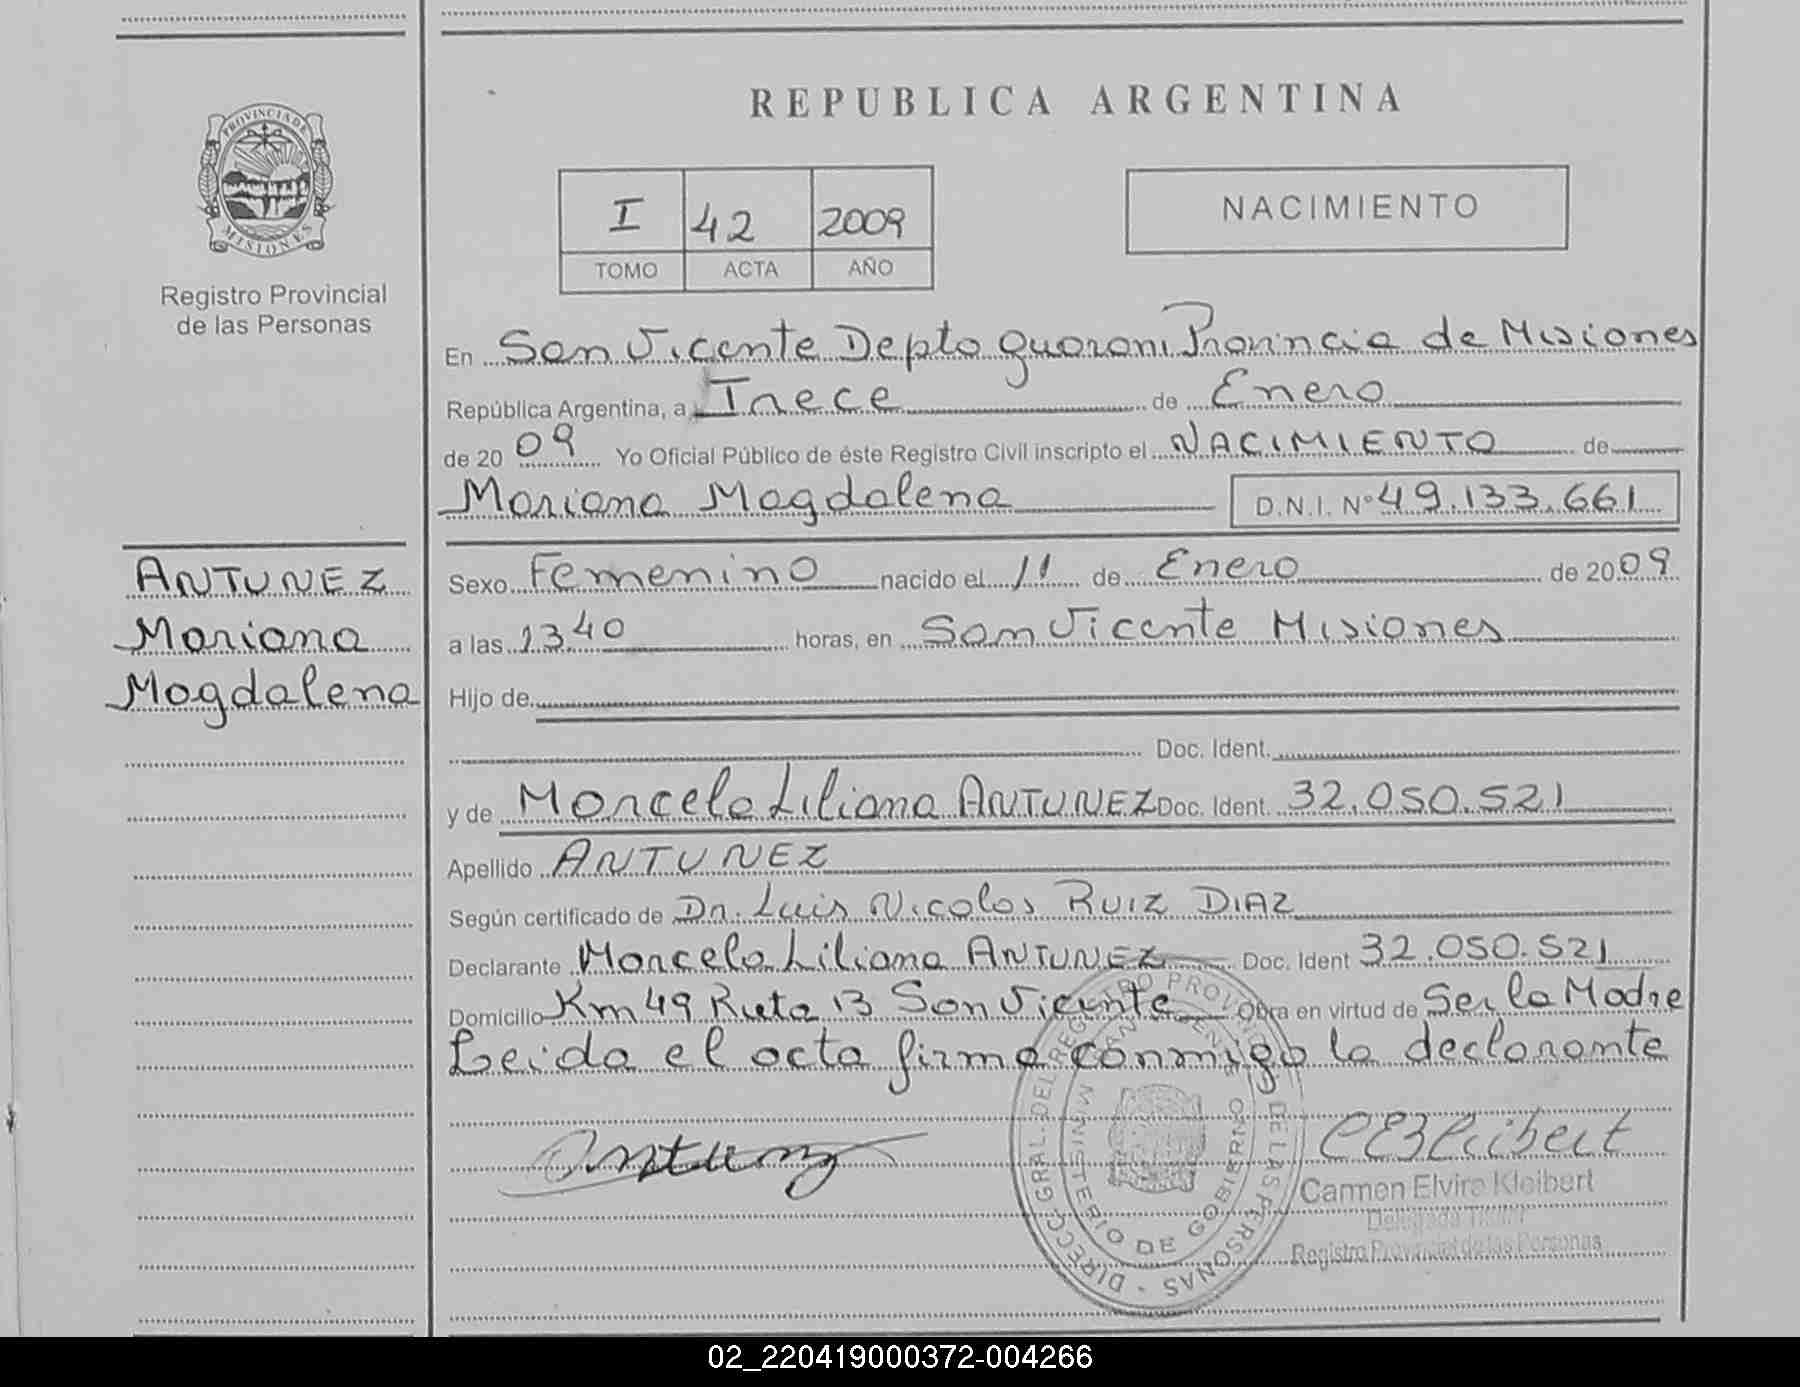 REPUBLICA ARGENTINA
PROVINCIA DE MISIONES
Registro Provincial
de las Personas
I 42 2009
TOMO ACTA AÑO
NACIMIENTO
En San Vicente Depto Guarani Provincia de Misiones
República Argentina, a Trece de Enero
de 2009 Yo Oficial Público de éste Registro Civil inscripto el NACIMIENTO de
Mariana Magdalena D.N.I. Nº 49.133.661
ANTUNEZ
Mariana
Magdalena
Sexo Femenino nacido el 11 de Enero de 2009
a las 13.40 horas, en San Vicente Misiones
Hijo de
Doc. Ident.
y de Marcela Liliana ANTUNEZ Doc. Ident. 32.050.521
Apellido ANTUNEZ
Según certificado de Dr. Luis Nicolas RUIZ DIAZ
Declarante Marcela Liliana ANTUNEZ Doc. Ident 32.050.521
Domicilio Km 49 Ruta 13 San Vicente Obra en virtud de Ser la Madre
Leida el acta firma conmigo la declarante
DIRECC. GRAL. DEL REGISTRO PROV. DE LAS PERSONAS
MINISTERIO DE GOBIERNO
Carmen Elvira Kleibert
Delegada Titular
Registro Provincial de las Personas
02_220419000372-004266